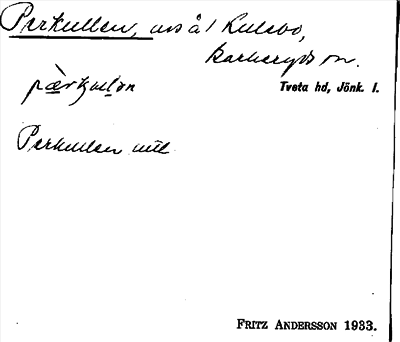 Perkullen, urs å/ Kulebo,
Barkeryds sn.
Tveta hd, Jönk. l.
Perkullen utt
FRITZ ANDERSSON 1933.